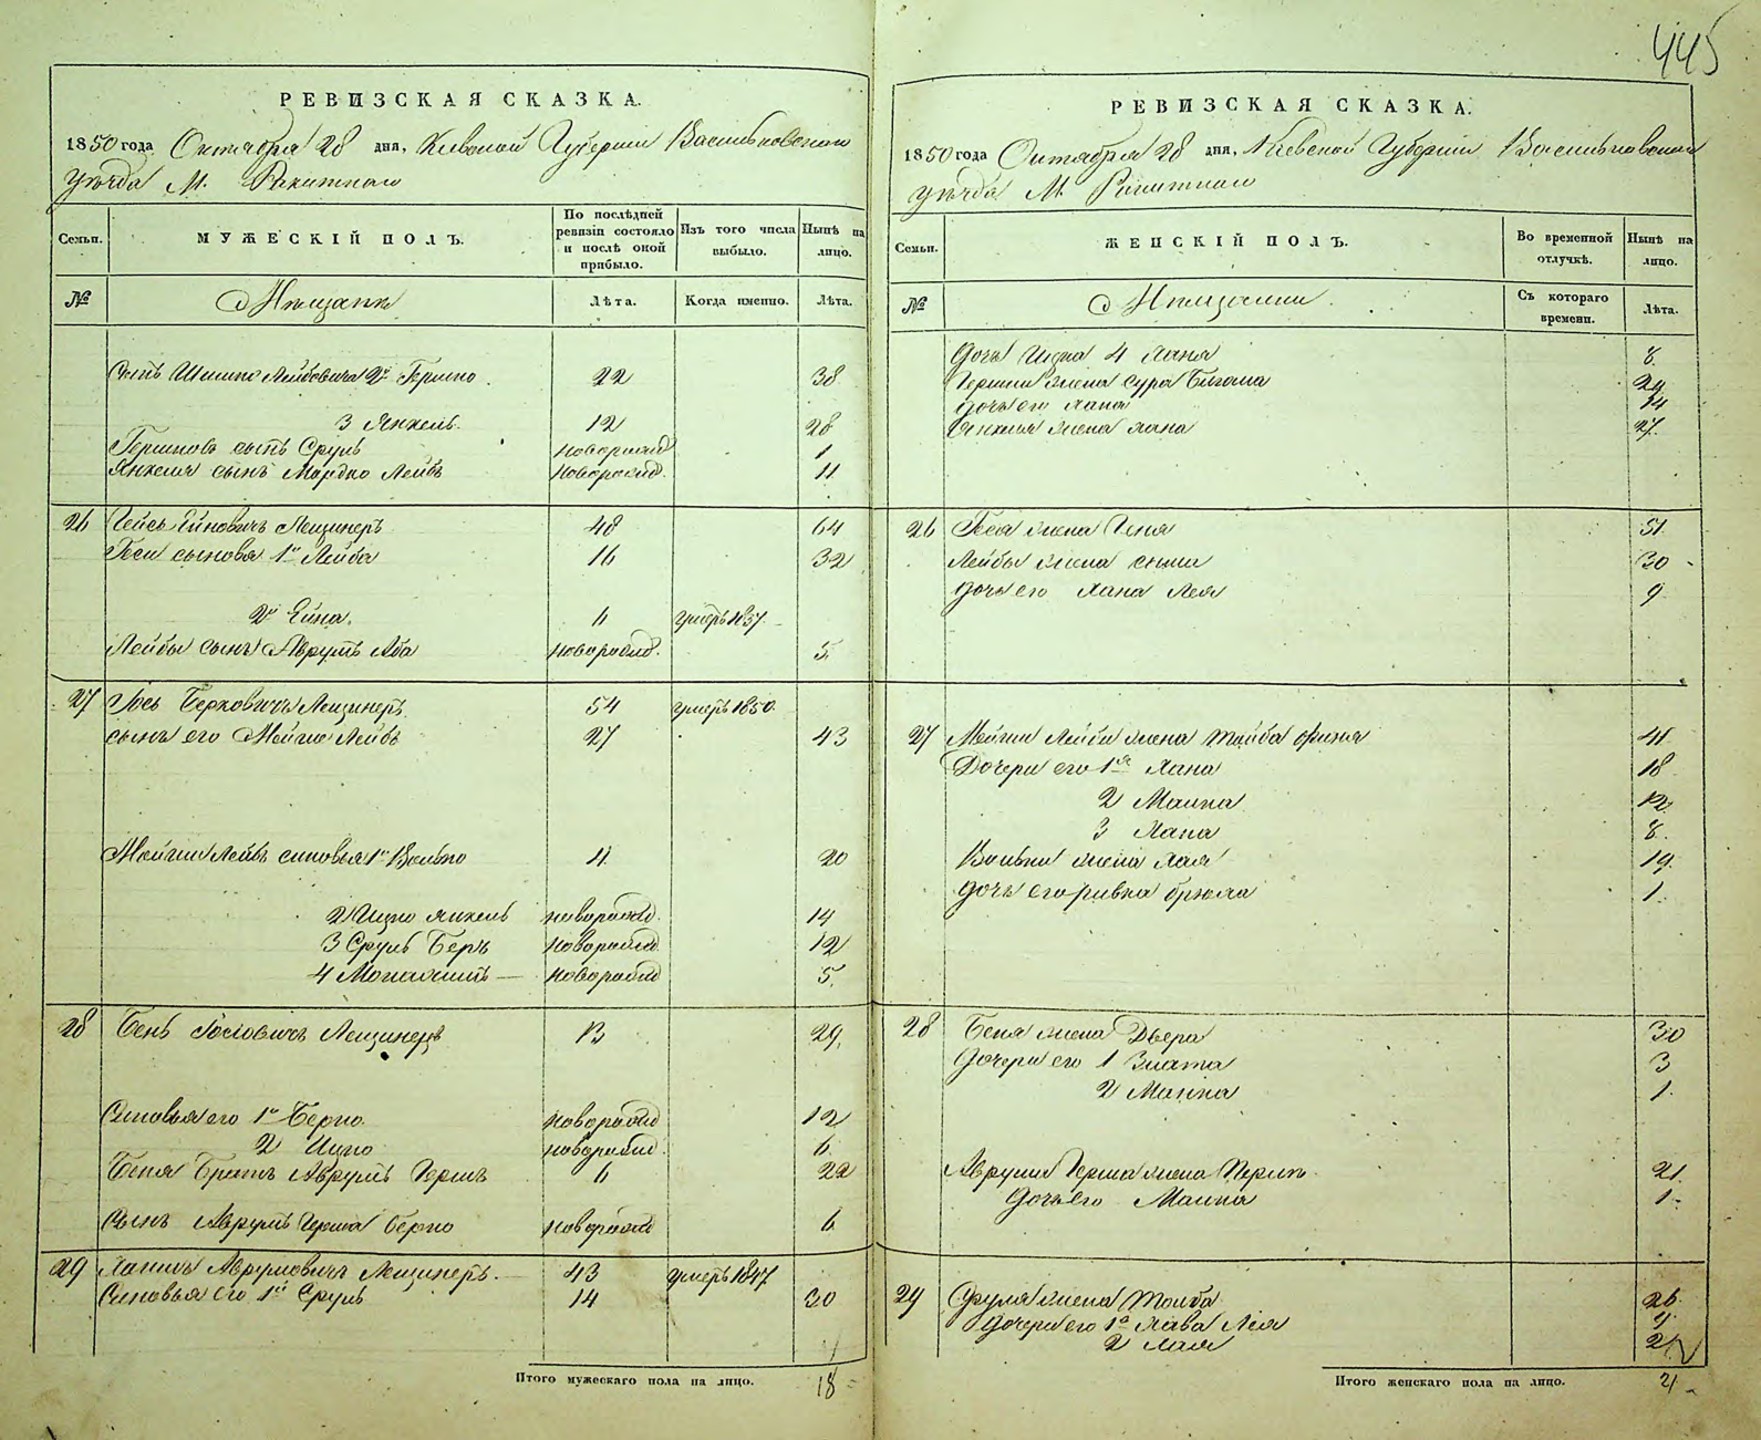 445
РЕВИЗСКАЯ СКАЗКА.
1850 года Октября 28 дня, Киевской Губернии Васильковского
уѣзда М. Ракитном
Семьи.
МУЖЕСКІЙ ПОЛЪ.
По послѣдней ревизіи состояло и послѣ оной прибыло.
Изъ того числа выбыло.
Нынѣ на лицо.
№
Мѣщане
Лѣта.
Когда именно.
Лѣта.
2й Гершко 22 38
3 Янкель 12 28
Гершковъ сынъ Сруль новорожд 1
Янкеля сынъ Мордко Лейбъ новорожд. 11
26 Лещинеръ 48 64
сыновья 1й Лейба 16 32
2й 6 умеръ 1837
Лейбы сынъ Аврумъ Аба новорожд. 5
27 Іось Берковичъ Лещинеръ 54 умеръ 1850
сынъ его Лейбъ 27 43
Лейбъ сыновья 1й Волько 4 20
2 Ицко Янкель новорожд. 14
3 Сруль Беръ новорожд 12
4 новорожд 5.
28 Бень Іосіовичъ Лещинеръ 13 29
Сыновья его 1й Берко новорожд 12
2 Ицко новорожд 6
Беня братъ Аврумъ Гершъ 6 22
Сынъ Аврумъ Герша Берко новорожд 6
29 Аврумовичъ Лещинеръ. 43 умеръ 1847
Сыновья его 1й Сруль 14 30
Итого мужескаго пола на лицо. 18
РЕВИЗСКАЯ СКАЗКА.
1850 года Октября 28 дня, Кіевской Губерніи Васильковского
уѣзда М. Ракитном
Семьи.
ЖЕНСКІЙ ПОЛЪ.
Во временной отлучкѣ.
Нынѣ на лицо.
№
Мѣщанки
Съ котораго времени.
Лѣта.
Дочь 4 Хана 8
Гершки жена Сура 29
Дочь его Хана 14
Янкеля жена Хана 27
26 жена Геня 51
Лейбы жена 30
Дочь его Хана Лея 9
27 Лейбы жена Тойба 41
Дочери его 1я Хана 18
2 Малка 12
3 Хана 8.
Вольки жена Хая 19
Дочь его Ривка 1.
28 Беня жена Двера 30
Дочери его 1 Злата 3
2 Малка 1.
Аврума Герша жена 21.
Дочь его Малка 1.
29 Сруля жена Тойба 26.
Дочери его 1я Хава Лея
2 Хая 2
Итого женскаго пола на лицо. 21